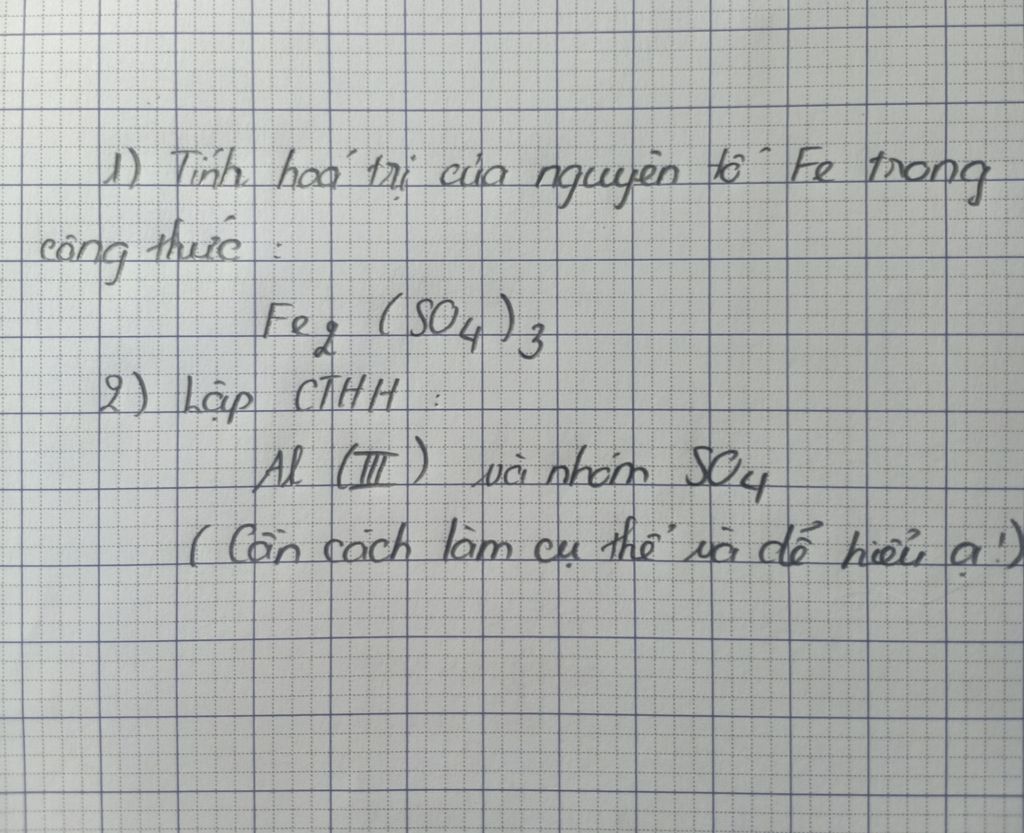 1) Tính hoá trị của nguyên tố Fe trong
công thức :
Fe2 (SO4)3
2) Lập CTHH :
Al (III) và nhóm SO4
(Cần cách làm cụ thể và dễ hiểu ạ!)